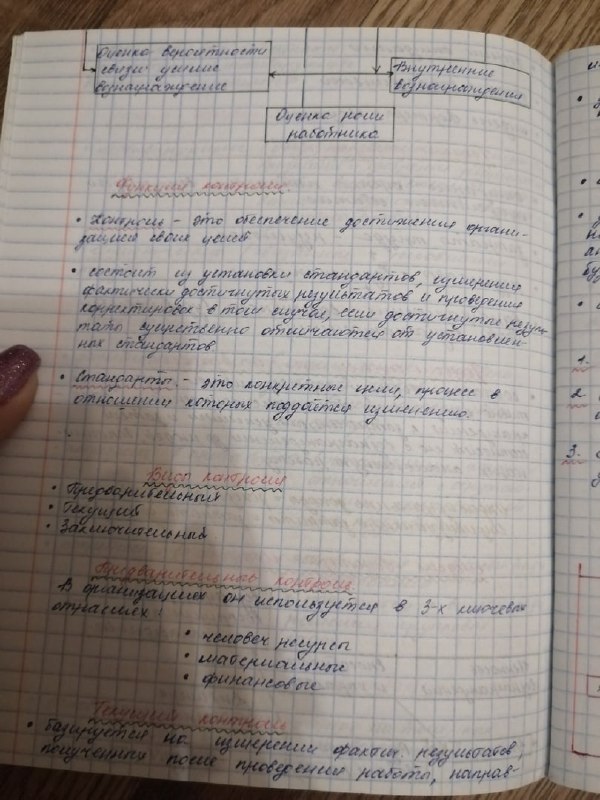 Оценка вероятности
связи усилие
вознаграждение
Внутренние
вознаграждения
Оценка роли
работника
Функция контроля.
• Контроль – это обеспечение достижения органи-
зацией своих целей
• состоит из установки стандартов, измерения
фактически достигнутых результатов и проведения
корректировок в том случае, если достигнутые резуль-
таты существенно отличаются от установлен-
ных стандартов.
• Стандарты – это конкретные цели, процесс в
отношении которых поддаётся изменению.
Виды контроля
• Предварительный
• Текущий
• Заключительный
Предварительный контроль.
В организациях он используется в 3-х ключевых
отраслях:
• человеч ресурсы
• материальные
• финансовые
Текущий контроль
• базируется на измерении фактич. результатов,
полученных после проведения работы, направ-
1.
2.
3.